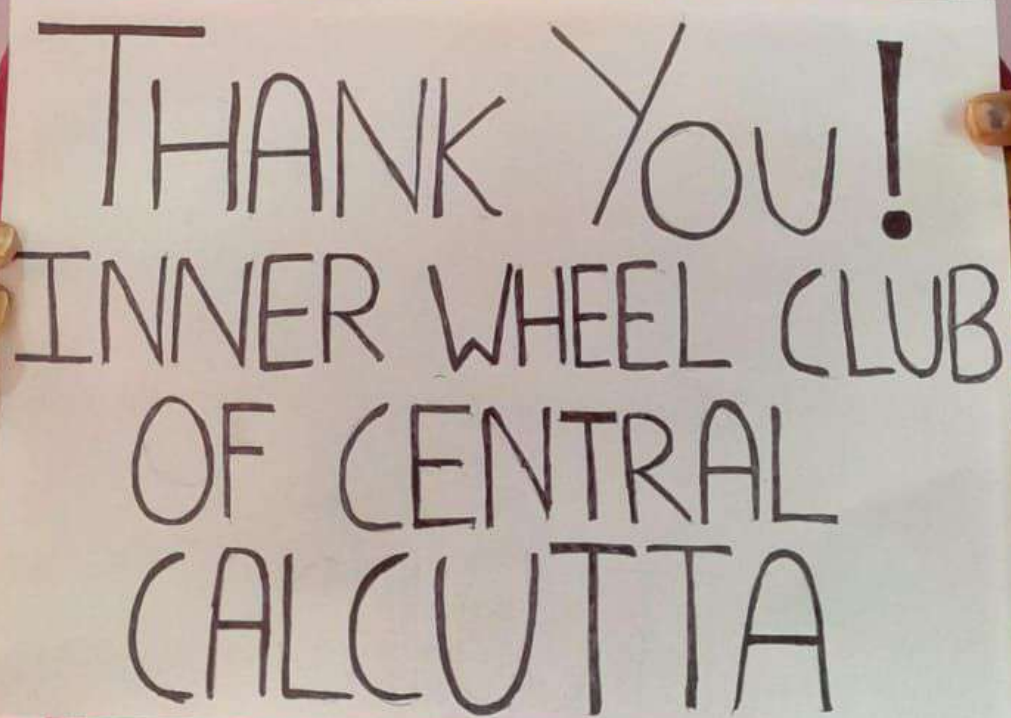 THANK YOU!
INNER WHEEL CLUB
OF CENTRAL
CALCUTTA